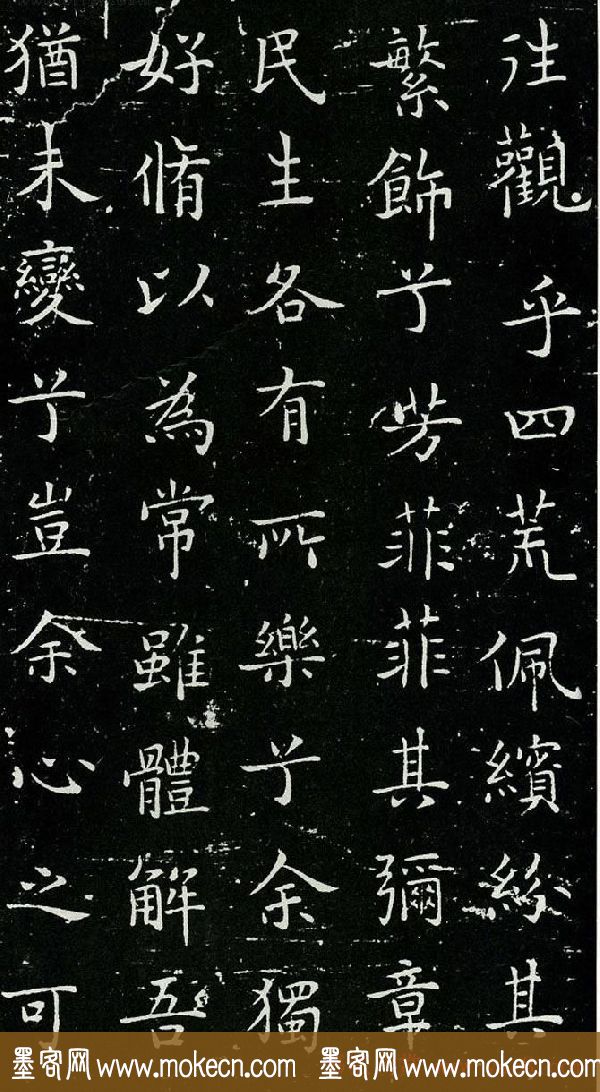 往觀乎四荒佩繽紛其
繁飾兮芳菲菲其彌章
民生各有所樂兮余獨
好脩以為常雖體解吾
猶未變兮豈余心之可
墨客网 www.mokecn.com 墨客网 www.mokecn.com